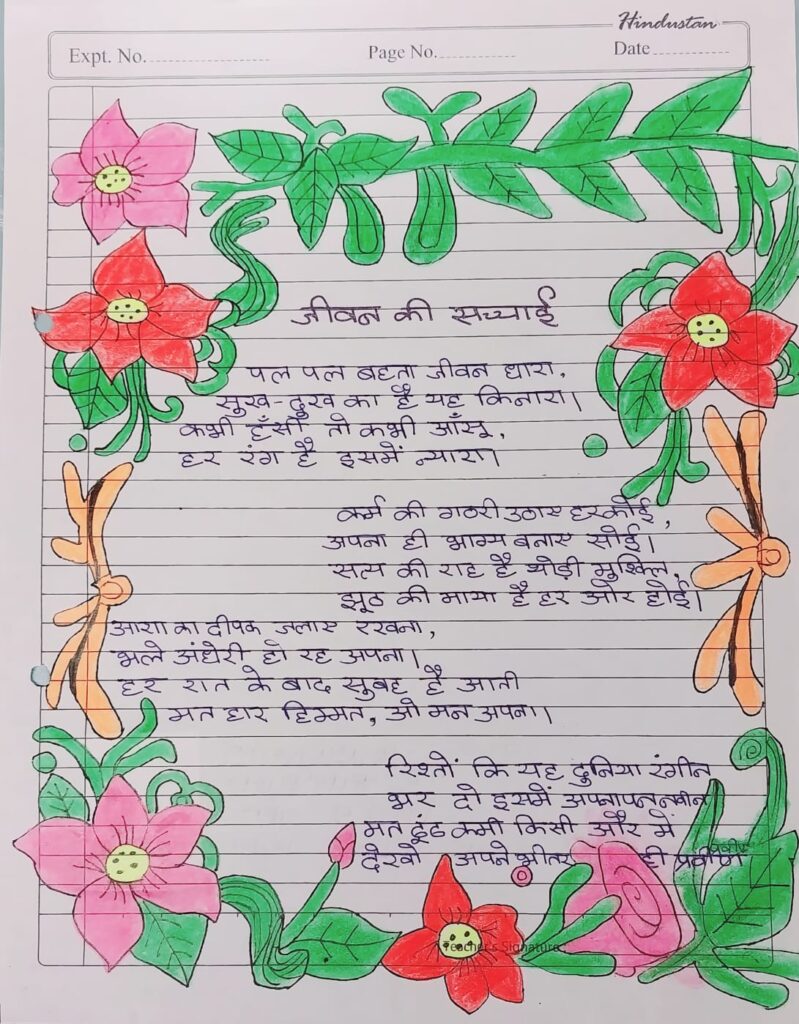 Hindustan
Expt. No.
Page No.
Date
जीवन की सच्चाई
पल पल बहता जीवन धारा,
सुख-दुख का है यह किनारा।
कभी हँसी तो कभी आँसू,
हर रंग है इसमें न्यारा।
कर्म की गठरी उठाए हरकोई,
अपना ही भाग्य बनाए सोई।
सत्य की राह है थोड़ी मुश्किल,
झूठ की माया है हर ओर होई।
आशा का दीपक जलाए रखना,
भले अंधेरी हो रह अपना।
हर रात के बाद सुबह है आती
मत हार हिम्मत, ओ मन अपना।
रिश्तों कि यह दुनिया रंगीन
भर दो इसमें अपनापन नवीन
मत ढूंढ कमी किसी और में
देखो अपने भीतर ही प्रवीण
Teacher's Signature